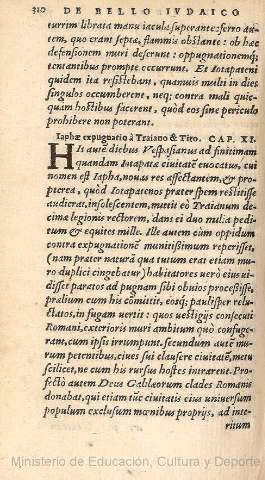 310 DE BELLO IVDAICO
turrim librata manu iacula superante: ferro au-
tem, quo erant septæ, flammis obstante: ob hæc
defensionem muri deserunt: oppugnationemq;
tentantibus prompte occurrunt. Et Iotapateni
quidem ita resistebant, quamuis multi in dies
singulos occumberent, neq; contra mali quic-
quam hostibus facerent, quòd eos sine periculo
prohibere non poterant.
Iaphæ expugnatio à Traiano & Tito. CAP. XI.
HIs autẽ diebus Vespasianus ad finitimam
quandam Iotapatæ ciuitatẽ euocatus, cui
nomen est Iapha, nouas res affectantem, & pro-
pterea, quòd Iotapatenos præter spem restitisse
audierat, insolescentem, mittit eò Traianum de-
cimæ legionis rectorem, datis ei duo millia pedi-
tum & equites mille. Ille autem cùm oppidum
contra expugnationẽ munitissimum reperisset,
(nam præter naturã qua tutum erat etiam mu-
ro duplici cingebatur) habitatores verò eius vi-
disset paratos ad pugnam sibi obuios processisse,
prælium cum his cõmittit, eosq; paulisper relu-
ctatos, in fugam vertit: quos vestigijs consecuti
Romani, exterioris muri ambitum quò confuge-
rant, cum ipsis irrumpunt. secundum autẽ mu-
rum petentibus, ciues sui clausere ciuitatẽ, metu
scilicet, ne cum his rursus hostes intrarent. Pro-
fectò autem Deus Galilæorum clades Romanis
donabat, qui etiam tũc ciuitatis eius vniuersum
populum exclusum mœnibus proprijs, ad inte-
ritum
Ministerio de Educación, Cultura y Deporte